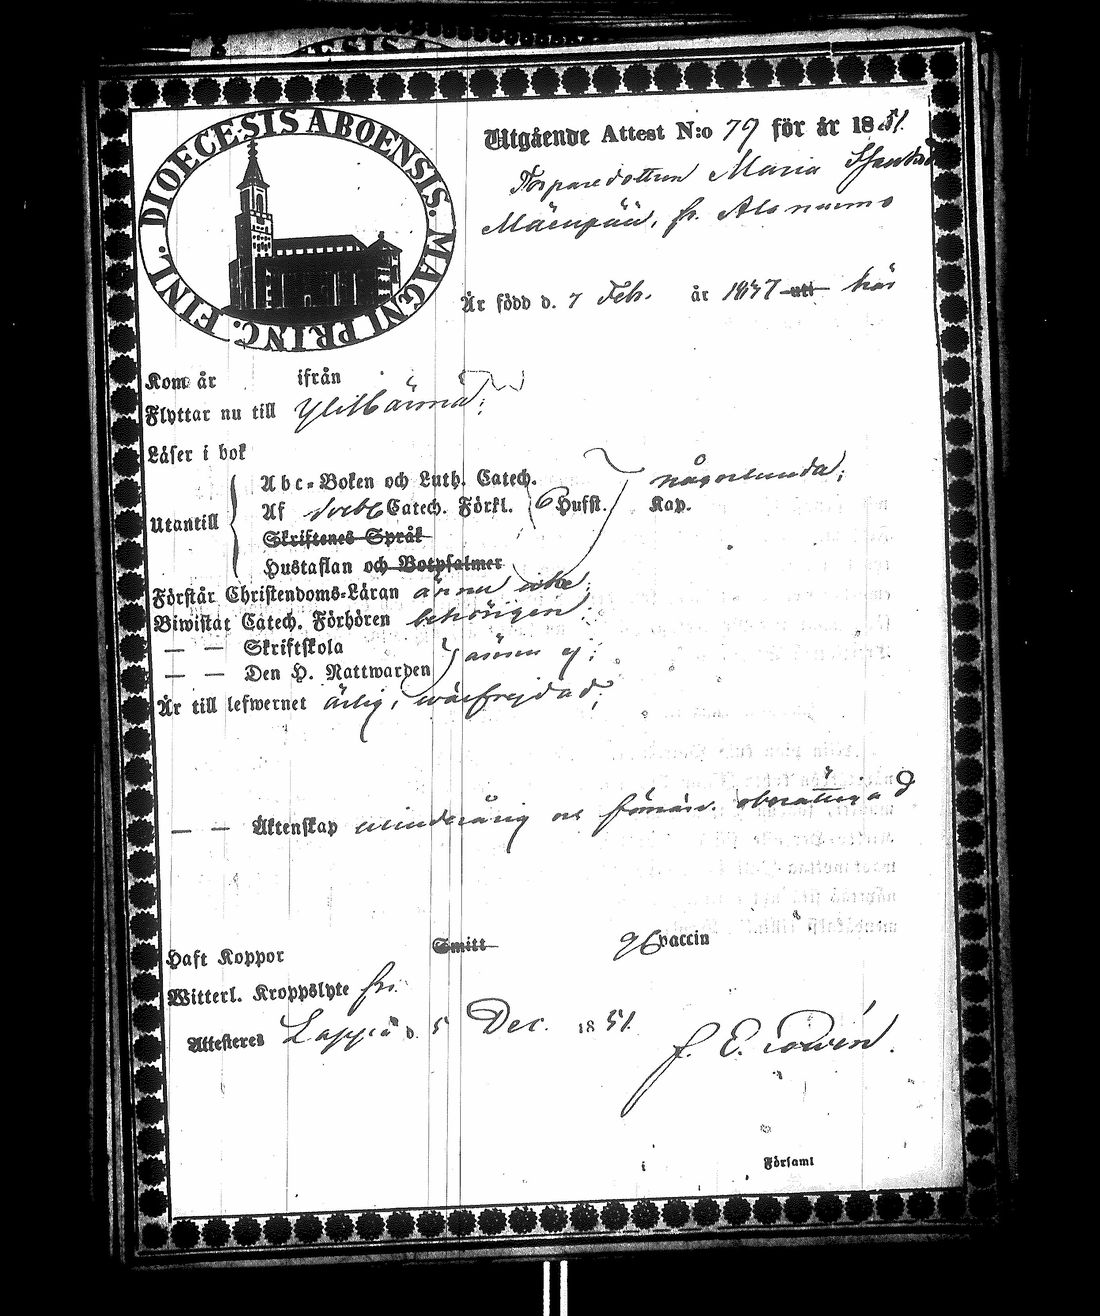 DIOECESIS ABOENSIS. MAGNI PRINC. FINL.
Utgående Attest N:o 79 för år 1851.
Torparedottren Maria
Mäenpää, fr.
Är född d. 7 Feb. år 1837 utt här
Kom år ifrån
Flyttar nu till Ylihärmä;
Läser i bok
Utantill
Abc-Boken och Luth. Catech. någorlunda;
Af Svebel Catech. Förkl. 6 Hufst. Kap.
Skriftenes Språk
Hustaflan och Botpsalmer
Förstår Christendoms-Läran ännu icke;
Biwistat Catech. Förhören behörigen;
— — Skriftskola
ännu ej;
— — Den H. Nattwarden
Är till lefwernet ärlig, wälfrejdad;
— — Äktenskap minderårig oc
Haft Koppor Smitt vaccin
Witterl. Kroppslyte fri.
Attesteres Lappo d. 5 Dec. 1851.
Församl